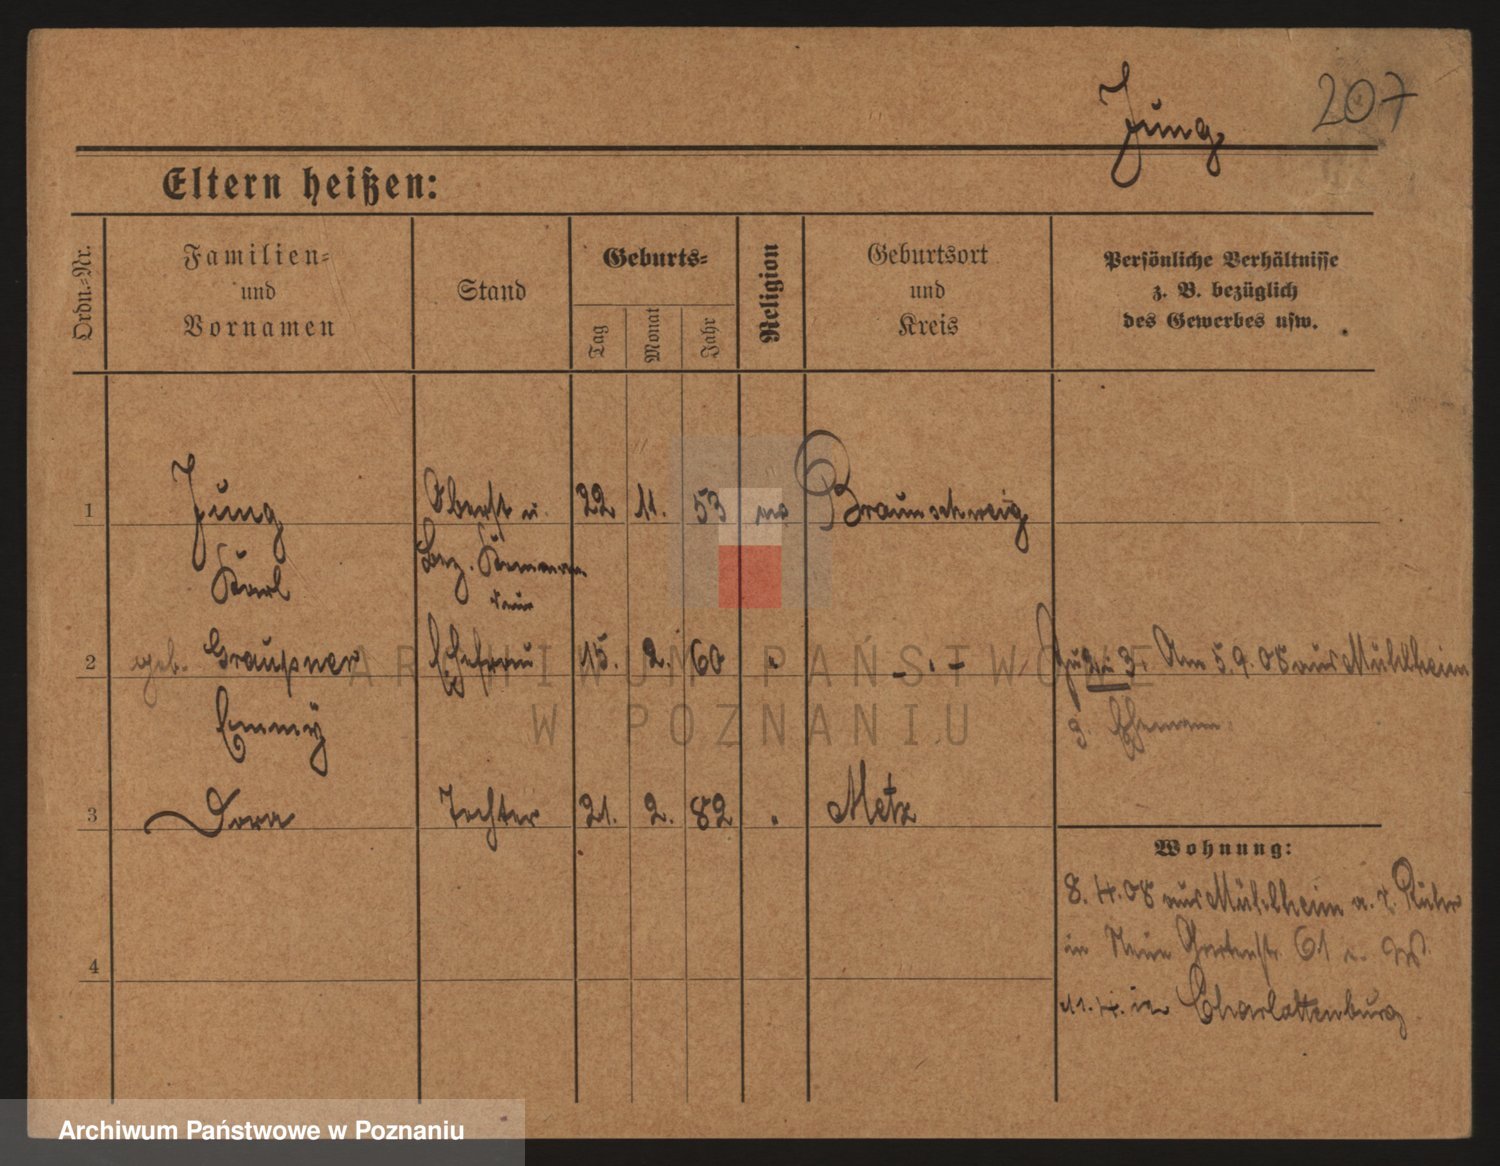 Jung
207
Eltern heißen:
Ordn.-Nr.
Familien-
und
Vornamen
Stand
Geburts-
Tag
Monat
Jahr
Religion
Geburtsort
und
Kreis
Persönliche Verhältnisse
z. B. bezüglich
des Gewerbes usw.
1 Jung Oberst u. 22 11. 53 Braunschweig
Karl Bez. Komman-
deur
2 geb. Graußner Ehefrau 15. 2. 60 " - " - Zu 2 u 3. Am 5.9.08 aus Mühlheim
Emmy z. Ehemann
3 Dora Tochter 21. 2. 82 " Metz
Wohnung:
8.4.08 aus Mühlheim a. d. Ruhr
in Neue Gartenstr. 61
4
11.4. in Charlottenburg
ARCHIWUM PAŃSTWOWE
W POZNANIU
Archiwum Państwowe w Poznaniu